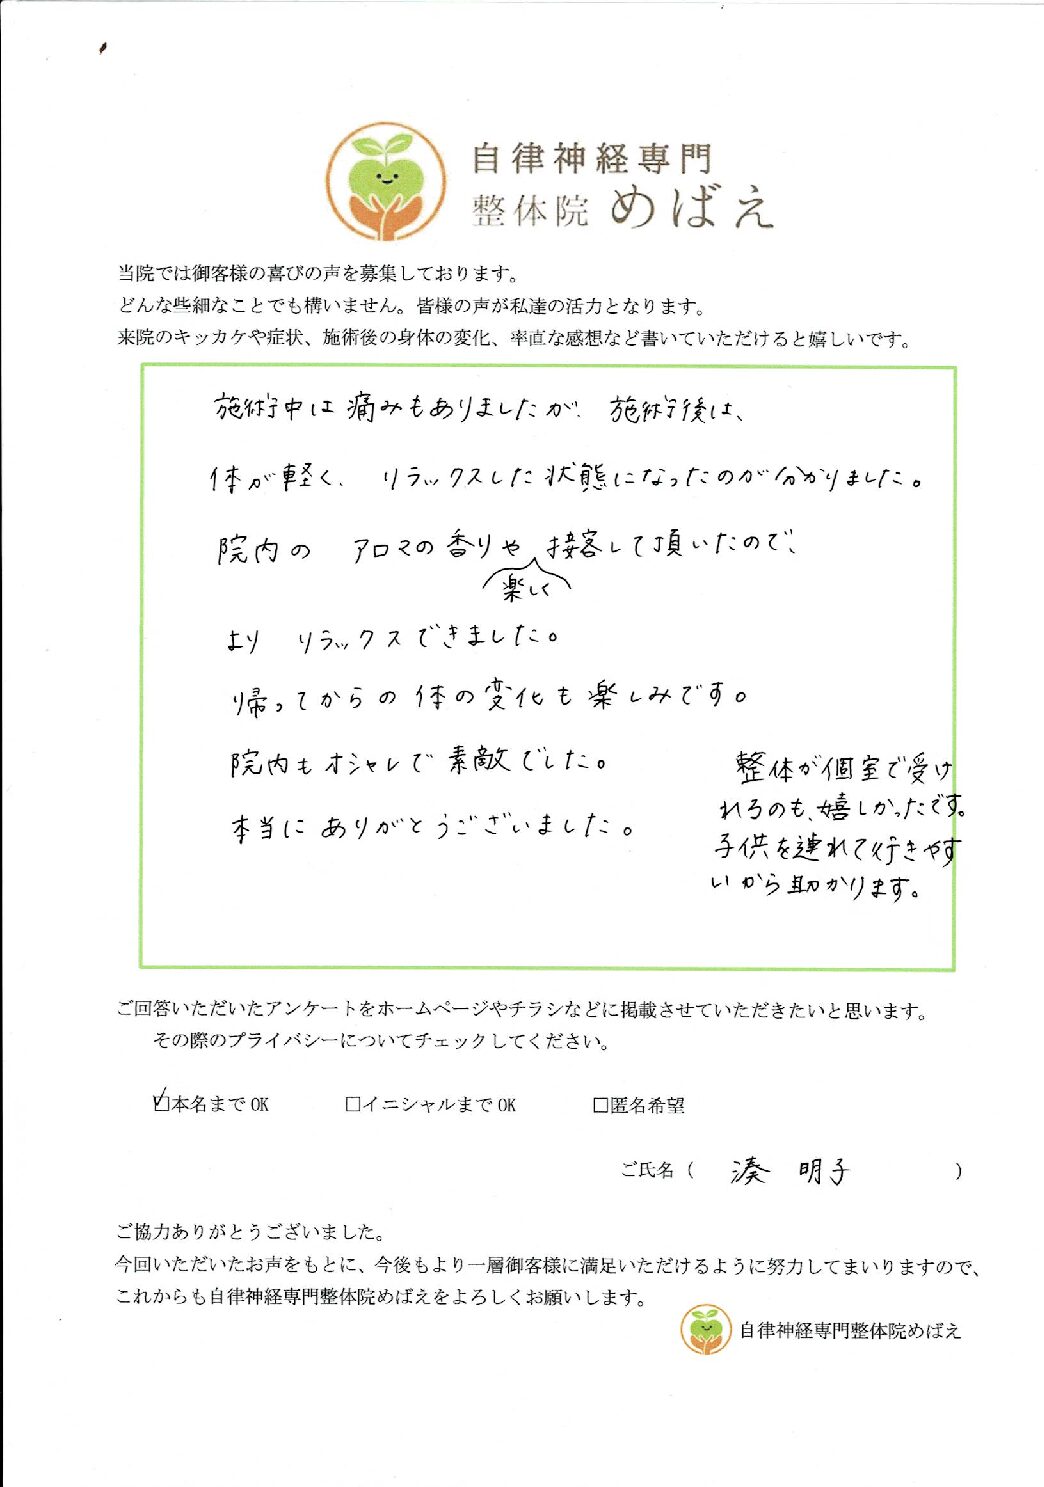 自律神経専門
整体院 めばえ
当院では御客様の喜びの声を募集しております。
どんな些細なことでも構いません。皆様の声が私達の活力となります。
来院のキッカケや症状、施術後の身体の変化、率直な感想など書いていただけると嬉しいです。
施術中は痛みもありましたが、施術後は、
体が軽く、リラックスした状態になったのが分かりました。
院内の アロマの香りや 接客して頂いたので、
楽しく
より リラックスできました。
帰ってからの体の変化も楽しみです。
院内もオシャレで素敵でした。
本当にありがとうございました。
整体が個室で受け
れるのも、嬉しかったです。
子供を連れて行きやす
いから助かります。
ご回答いただいたアンケートをホームページやチラシなどに掲載させていただきたいと思います。
その際のプライバシーについてチェックしてください。
☑本名までOK □イニシャルまでOK □匿名希望
ご氏名（ 湊 明子 ）
ご協力ありがとうございました。
今回いただいたお声をもとに、今後もより一層御客様に満足いただけるように努力してまいりますので、
これからも自律神経専門整体院めばえをよろしくお願いします。
自律神経専門整体院めばえ